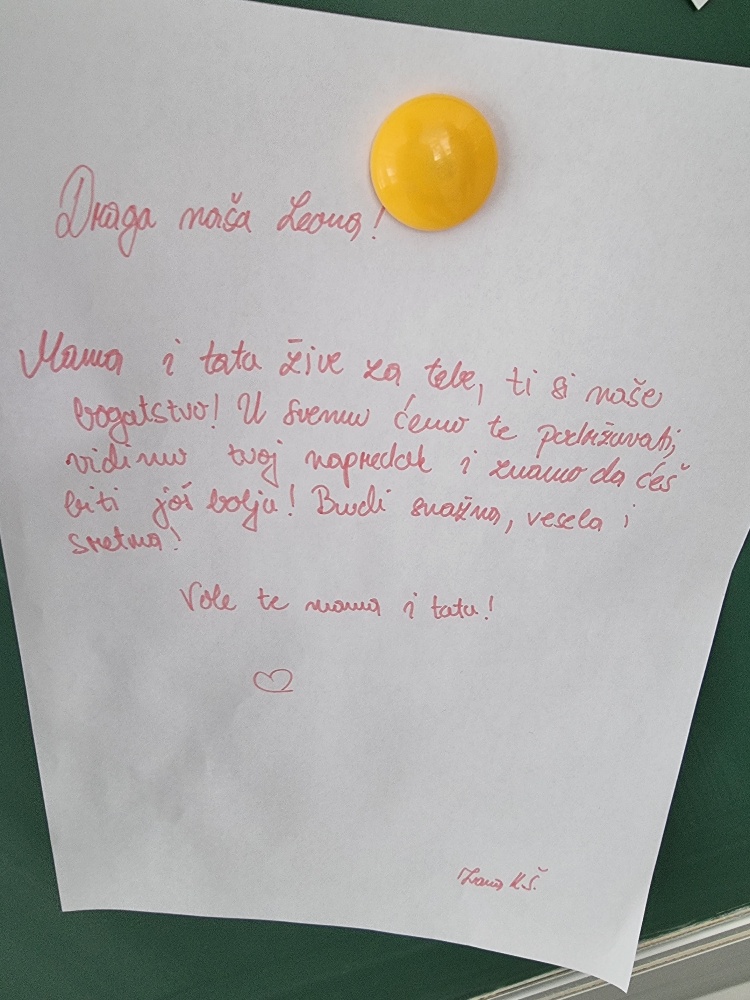 Draga naša Leona!
Mama i tata žive za tebe, ti si naše
bogatstvo! U svemu ćemo te podržavati,
vidimo tvoj napredak i znamo da ćeš
biti još bolja! Budi snažna, vesela i
sretna!
Vole te mama i tata!
K.Š.